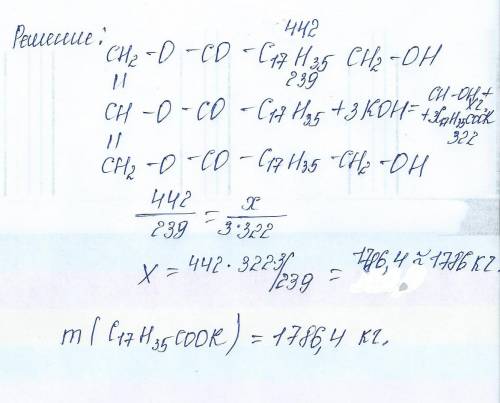 Решение:
442
CH₂ - O - CO - C₁₇H₃₅ CH₂ - OH
239
||
CH - O - CO - C₁₇H₃₅ + 3KOH = CH - OH +
+ 3C₁₇H₃₅COOK
322
||
CH₂ - O - CO - C₁₇H₃₅ - CH₂ - OH
442/239 = x/3·322
X = 442 · 322·3/239 = 1786,4 ≈ 1786 кг.
m(C₁₇H₃₅COOK) = 1786,4 кг.